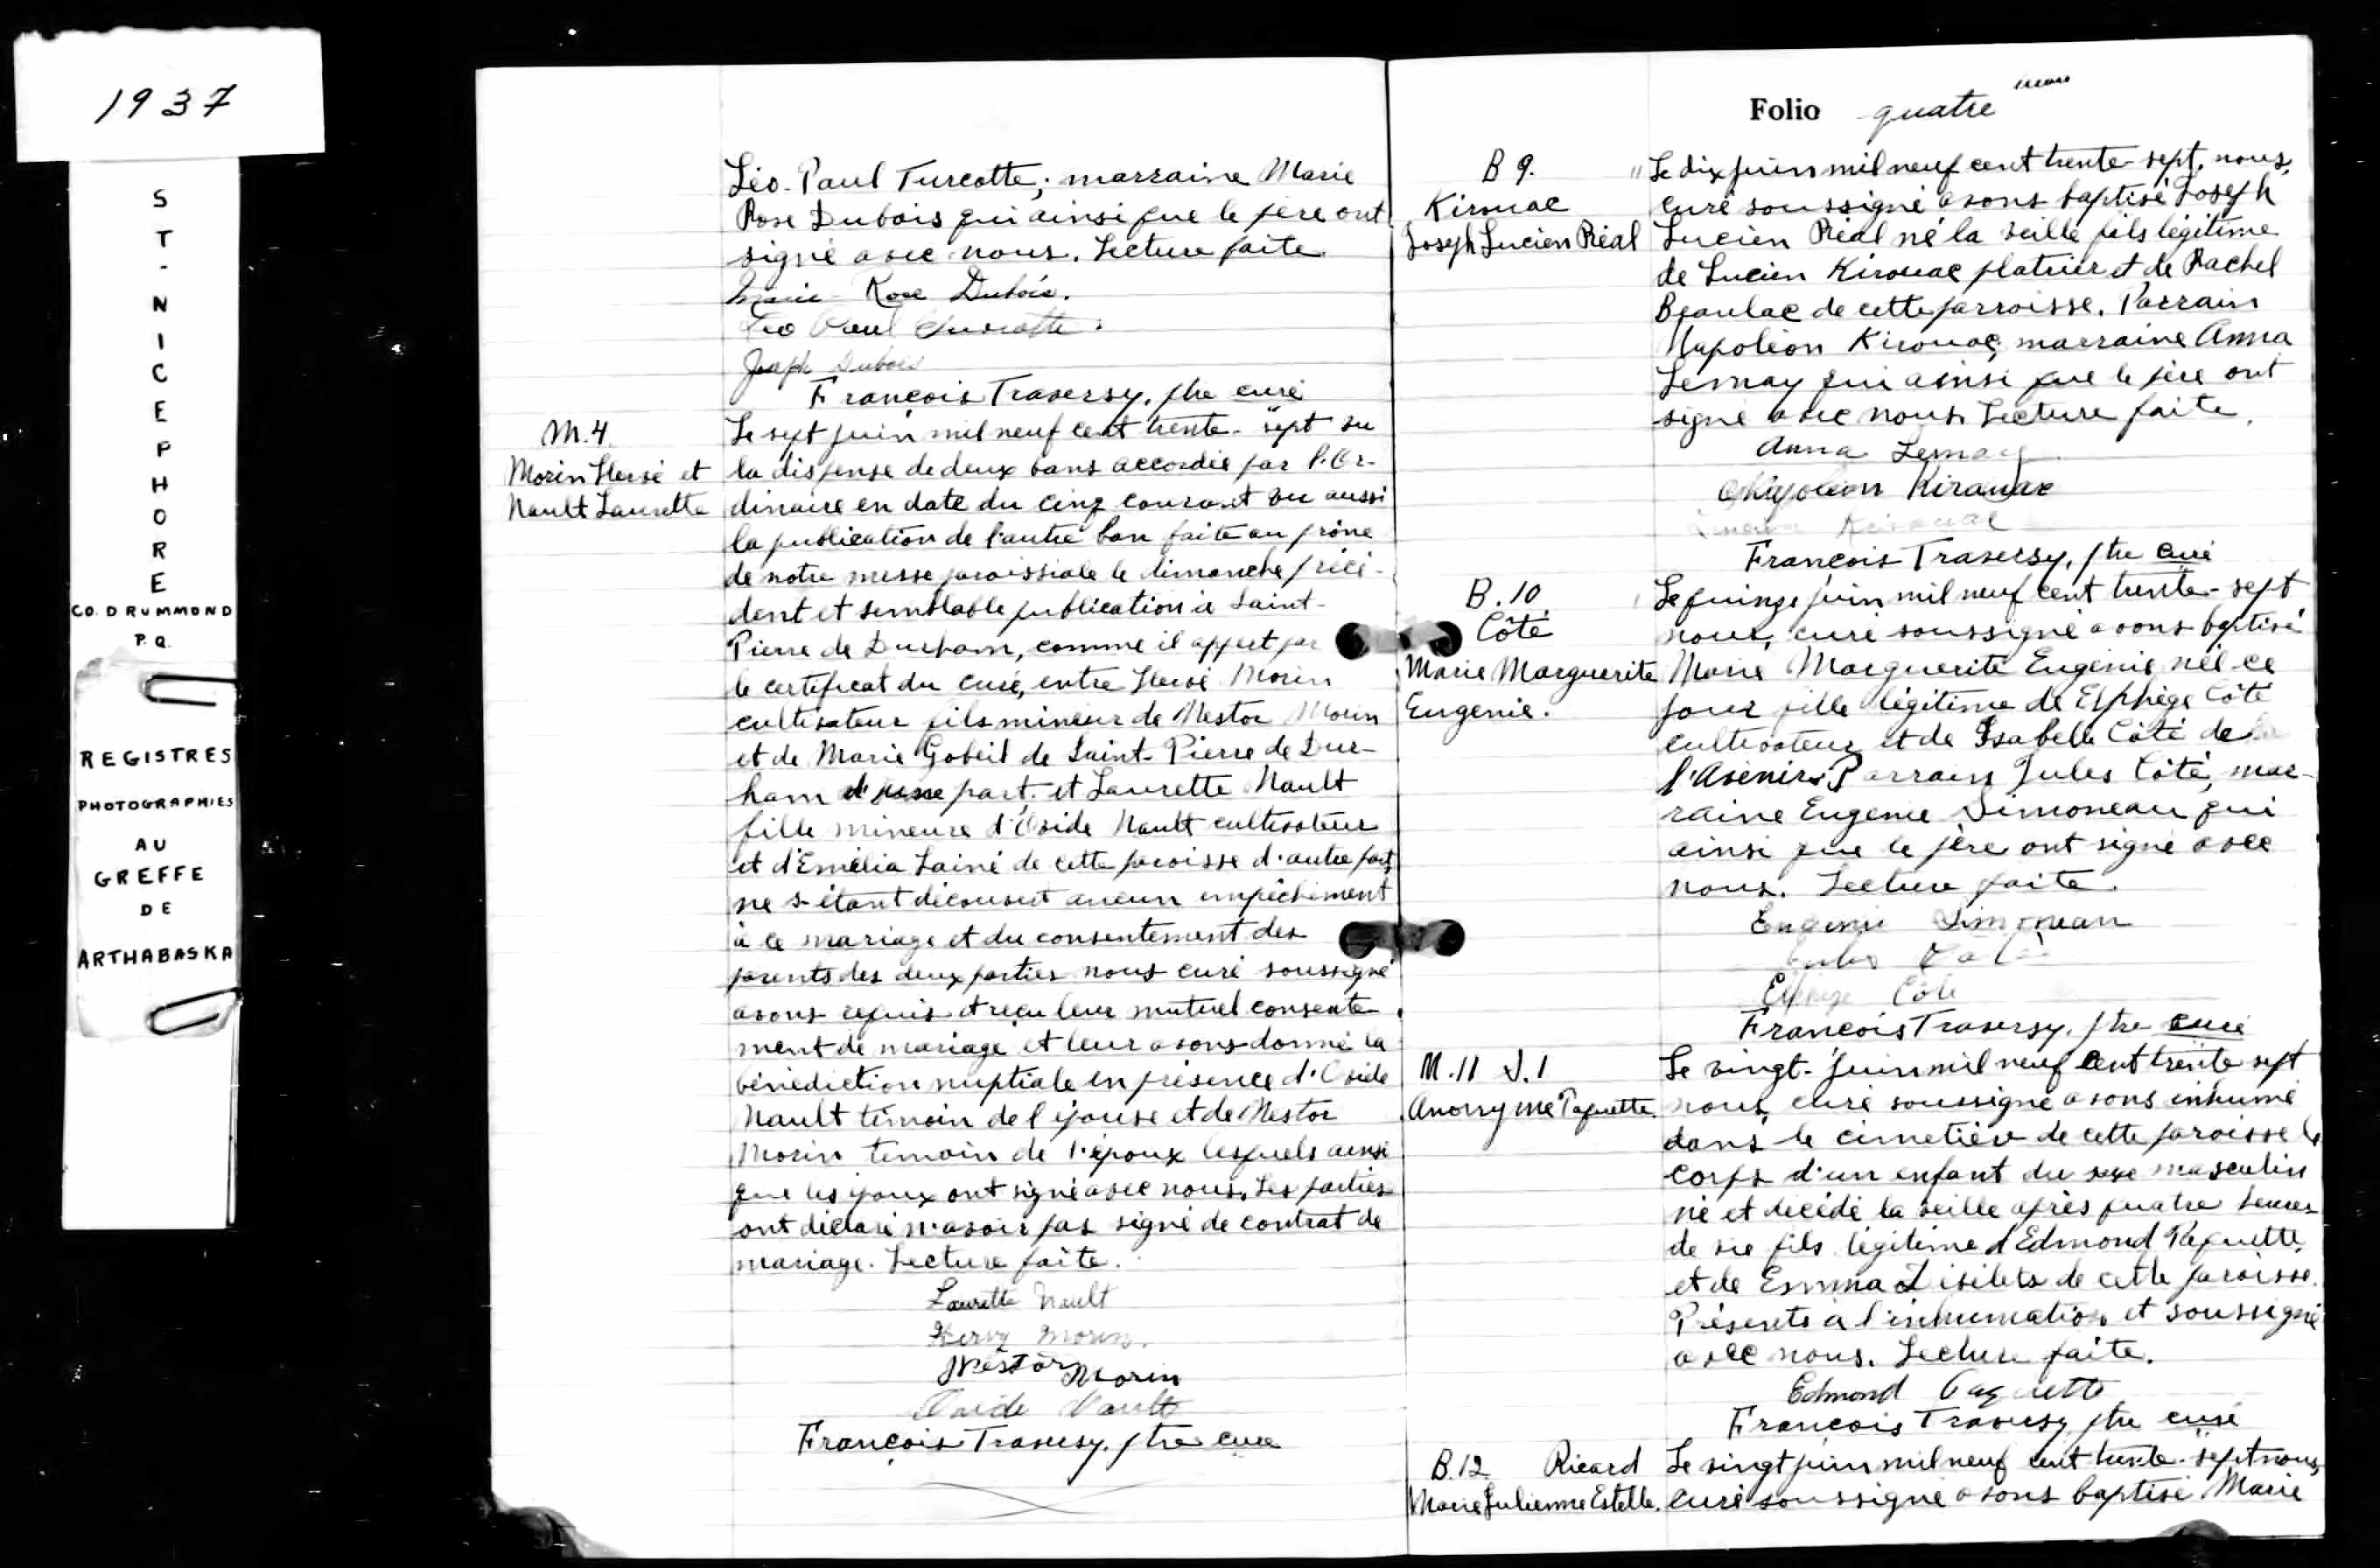 1937
ST-NICEPHORE
CO. DRUMMOND
P.Q.
REGISTRES
PHOTOGRAPHIES
AU
GREFFE
DE
ARTHABASKA
Léo-Paul Turcotte; marraine Marie
Rose Dubois qui ainsi que le père ont
signé avec nous. Lecture faite
Marie-Rose Dubois.
Léo Paul Turcotte.
Joseph Dubois
François Traversy, ptre curé
M.4.
Morin Hervé et
Nault Laurette
Le sept juin mil neuf cent trente-sept vu
la dispense de deux bans accordée par l'Or-
dinaire en date du cinq courant vu aussi
la publication de l'autre ban faite au prône
de notre messe paroissiale le dimanche précé-
dent et semblable publication à Saint-
Pierre de Durham, comme il appert par
le certificat du curé, entre Hervé Morin
cultivateur fils mineur de Nestor Morin
et de Marie Gobeil de Saint-Pierre de Dur-
ham d'une part. et Laurette Nault
fille mineure d'Ovide Nault cultivateur
et d'Emélia Lainé de cette paroisse d'autre part,
ne s'étant découvert aucun empêchement
à ce mariage et du consentement des
parents des deux parties nous curé soussigné
avons requis et reçu leur mutuel consente
ment de mariage et leur avons donné la
bénédiction nuptiale en présence d'Ovide
Nault témoin de l'épouse et de Nestor
Morin temoin de l'époux lesquels ainsi
que les époux ont signé avec nous. Les parties
ont déclaré n'avoir pas signé de contrat de
mariage. Lecture faite.
Laurette Nault
Hervy Morin.
Nestor Morin
Ovide Nault
François Traversy, ptre curé
Folio quatre
B 9.
Kirouac
Joseph Lucien Réal
Le dix juin mil neuf cent trente-sept, nous,
curé soussigné avons baptisé Joseph
Lucien Réal né la veille fils légitime
de Lucien Kirouac platrier et de Rachel
Beaulac de cette parroisse. Parrain
Napoléon Kirouac, marraine Anna
Lemay qui ainsi que le père ont
signé avec nous. Lecture faite.
Anna Lemay
Napoleon Kirouac
Kirouac
François Traversy, ptre curé
B.10
Côté
Marie Marguerite
Eugenie.
Le quinze juin mil neuf cent trente-sept
nous, curé soussigné avons baptisé
Marie Marguerite Eugénie née ce
jour fille légitime de Elphège Côté
cultivateur et de Isabelle Côté de
l'Avenir. Parrain Jules Côté, mar-
raine Eugenie Simoneau qui
ainsi que le père ont signé avec
nous. Lecture faite.
Eugenie Simoneau
Jules Côté
Elphege Côté
François Traversy, ptre curé
M.11 S.1
Anonyme Paquette.
Le vingt-juin mil neuf cent trente sept
nous, curé soussigné avons inhumé
dans le cimetière de cette paroisse le
corps d'un enfant du sexe masculin
né et décédé la veille après quatre heures
de vie fils légitime d'Edmond Paquette,
et de Emma de cette paroisse.
Présents à l'inhumation et soussigné
avec nous. Lecture faite.
Edmond Paquette
François Traversy ptre curé
B.12 Ricard
Marie Julienne Estelle.
Le vingt juin mil neuf cent trente-sept nous,
curé soussigné avons baptisé Marie